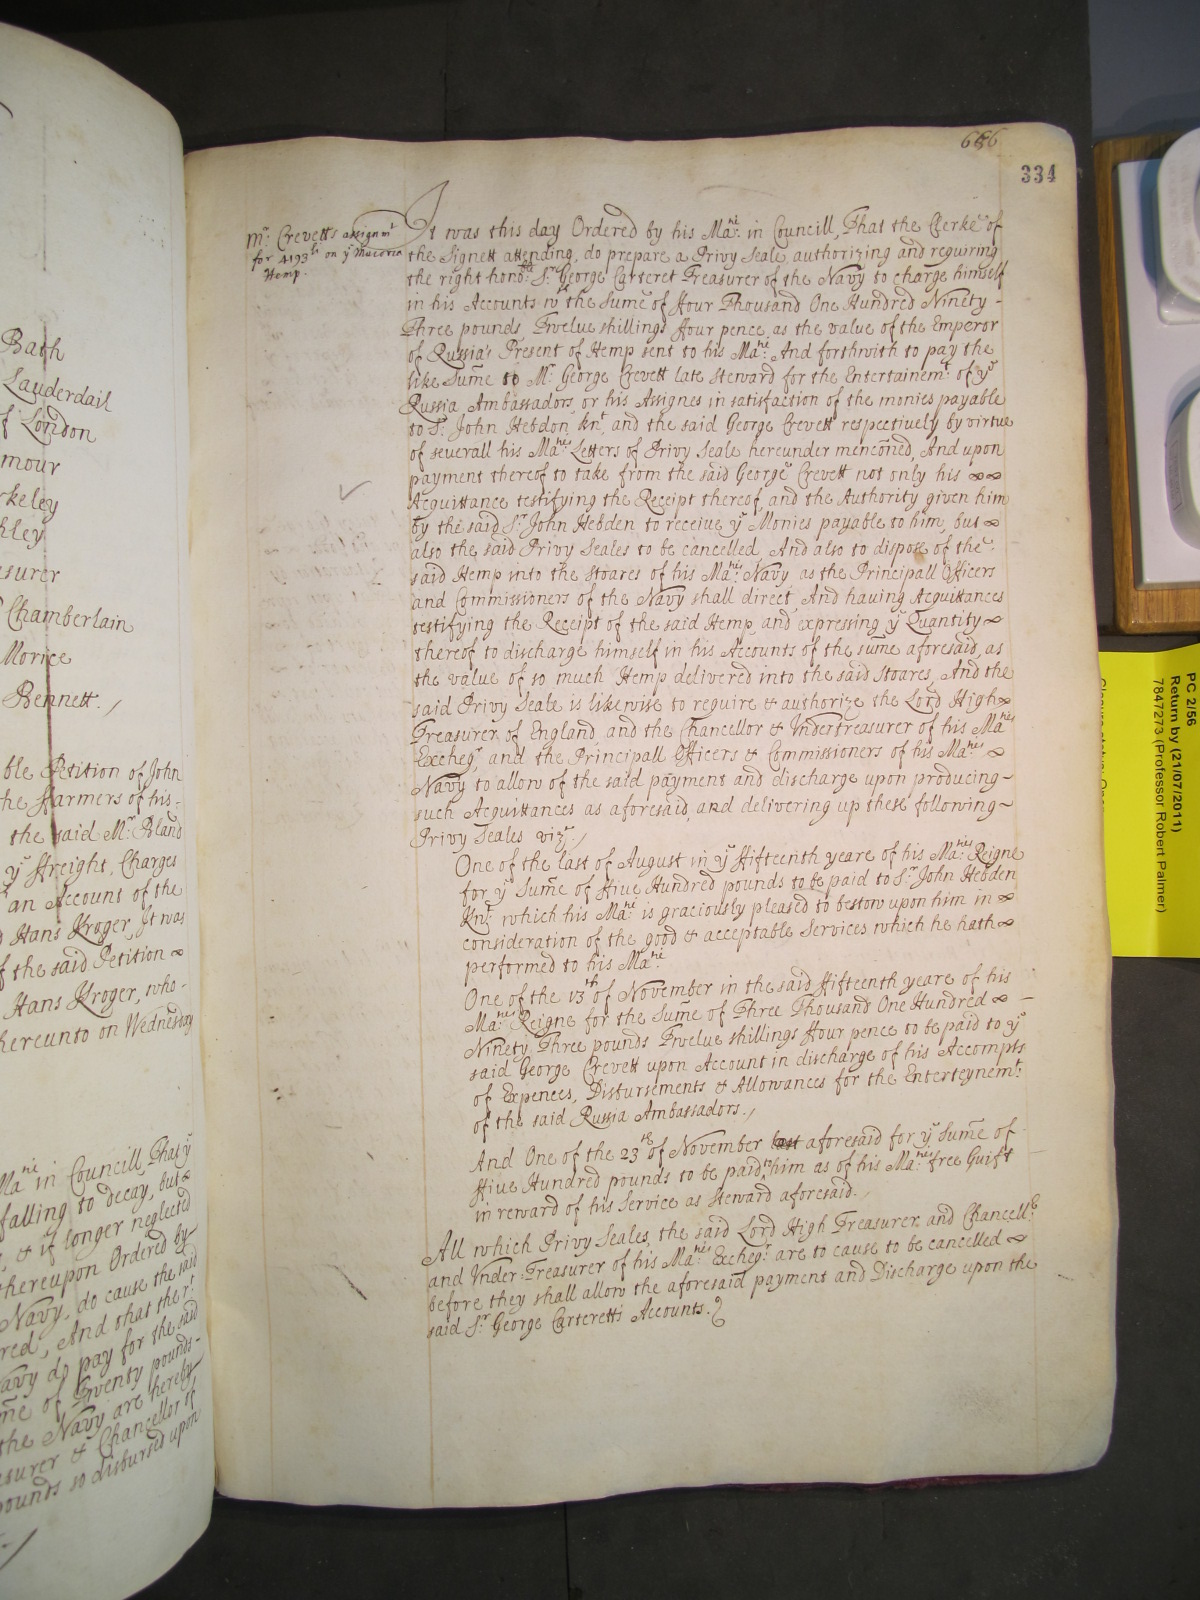 Bath
Lauderdail
f London
mour
rkeley
hley
surer
Chamberlain
Morice
Bennett./
ble Petition of John
he ffarmers of his:
the said Mr. Bland
ye ffreight, Charges
an Account of the
Hans Kroger, It was
f the said Petition
Hans Kroger, who-
hereunto on Wednesday
Matie in Councill, That ye
falling to decay, but
, & if longer neglected
thereupon Ordered by
Navy, do cause the said
red, And that the rt
avy do pay for the said
me of Twenty pounds-
the Navy are hereby
surer & Chancellor of
pounds so disbursed upon
686
334
Mr. Crevetts assignmt
for 4193li on ye Muscovia
Hemp.
It was this day Ordered by his Matie: in Councill, That the Clerke of
the Signett attending, do prepare a Privy Seale, authorizing and requiring
the right honoble: Sr. George Carteret Treasurer of the Navy to charge himself
in his Accounts wth the Sume of ffour Thousand One Hundred Ninety -
Three pounds Twelve shillings ffour pence, as the value of the Emperor
of Russia's Present of Hemp sent to his Matie: And forthwith to pay the
like Sume to Mr. George Crevett late Steward for the Entertainemt: of ye
Russia Ambassadors, or his Assignes in satisfaction of the monies payable
to Sr. John Hebdon, Knt, and the said George Crevett respectively by virtue
of severall his Maties Letters of Privy Seale hereunder menconed, And upon
payment thereof to take from the said George Crevett not only his
Acquittance testifying the Receipt thereof, and the Authority given him
by the said Sr John Hebden to receive ye Monies payable to him, but
also the said Privy Seales to be cancelled, And also to dispose of the
said Hemp into the Stoares of his Maties Navy as the Principall Officers
and Commissioners of the Navy shall direct, And having Acquittances
testifying the Receipt of the said Hemp, and expressing ye Quantity
thereof to discharge himself in his Accounts of the sume aforesaid, as
the value of so much Hemp delivered into the said Stoares, And the
said Privy Seale is likewise to require & authorize the Lord High
Treasurer of England, and the Chancellor & Undertreasurer of his Maties
Excheqr, and the Principall Officers & Commissioners of his Maties
Navy to allow of the said payment and discharge upon producing-
such Acquittances as aforesaid, and delivering up these following-
Privy Seales vizt./
One of the last of August in ye ffifteenth yeare of his Maties Reigne
for ye Sume of ffive Hundred pounds to be paid to Sr. John Hebden
Knt: which his Matie: is graciously pleased to bestow upon him in
consideration of the good & acceptable Services which he hath
performed to his Matie.
One of the 13th of November in the said ffifteenth yeare of his
Maties Reigne for the Sume of Three Thousand One Hundred -
Ninety Three pounds Twelve shillings ffour pence to be paid to ye
said George Crevett upon Account in discharge of his Accompts
of Expences, Disbursements & Allowances for the Enterteynemt:
of the said Russia Ambassadors./
And One of the 23th of November last aforesaid for ye Sume of
ffive Hundred pounds to be paid to him as of his Maties free Guift
in reward of his Service as Steward aforesaid./
All which Privy Seales, the said Lord High Treasurer, and Chancellr
and Under-Treasurer of his Maties Excheqr. are to cause to be cancelled
before they shall allow the aforesaid payment and Discharge upon the
said Sr George Carteretts Accounts.
PC 2/56
Return by (21/07/2011)
7847273 (Professor Robert Palmer)